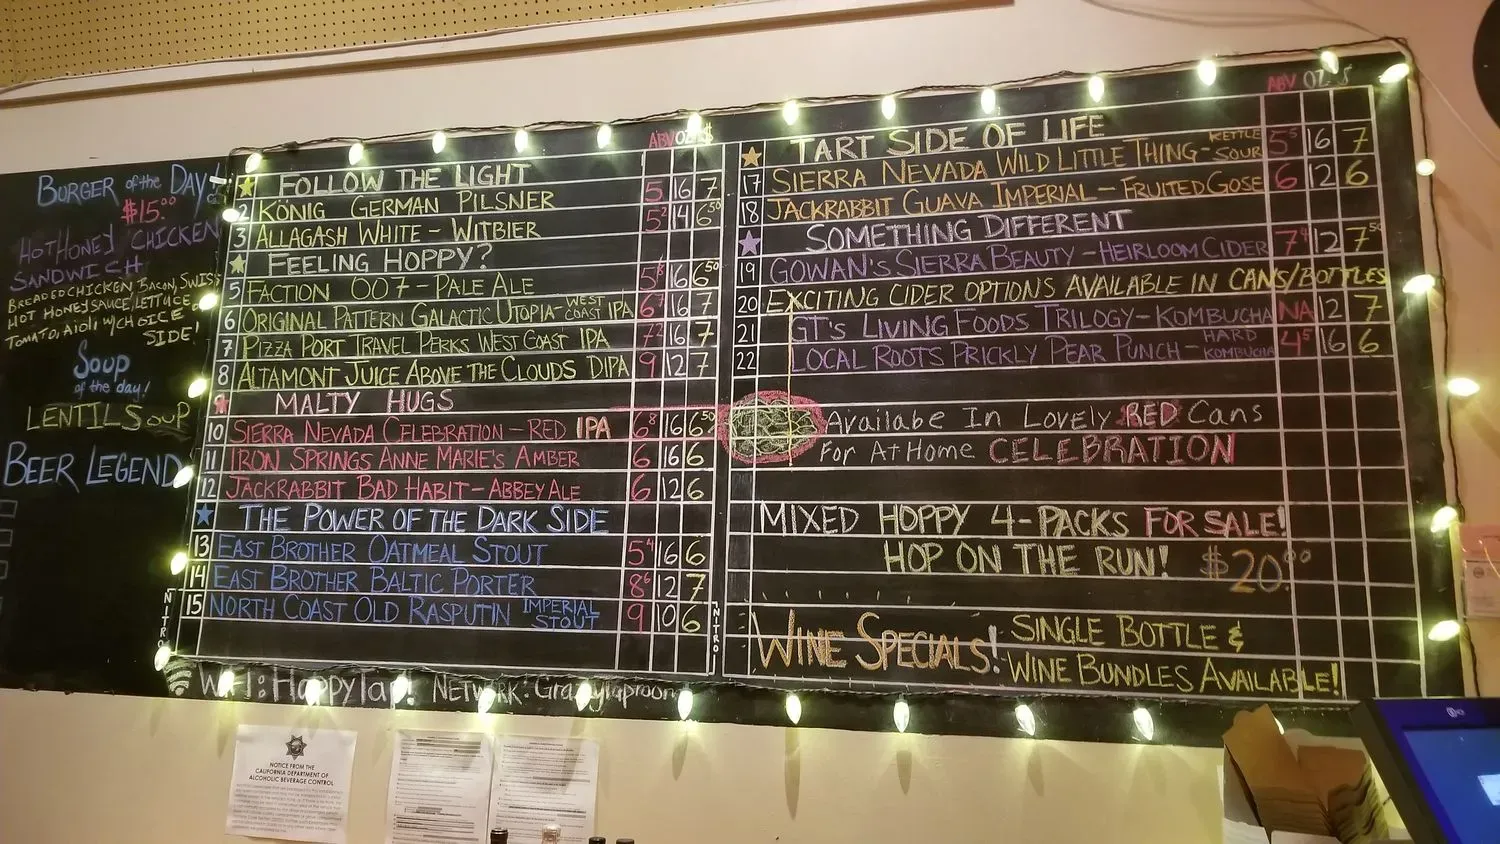 BURGER of the DAY!
$15.00
HOT HONEY CHICKEN
SANDWICH
BREADED CHICKEN, BACON, SWISS
HOT HONEY SAUCE, LETTUCE
TOMATO, AIOLI W/CHOICE
SIDE!
SOUP
of the day!
LENTIL SOUP
BEER LEGEND
ABV OZ $
FOLLOW THE LIGHT
2 KÖNIG GERMAN PILSNER 5 16 7
3 ALLAGASH WHITE - WITBIER 5² 14 6⁵⁰
FEELING HOPPY?
5 FACTION 007 - PALE ALE 5⁸ 16 6⁵⁰
6 ORIGINAL PATTERN GALACTIC UTOPIA - WEST COAST IPA 6⁷ 16 7
7 PIZZA PORT TRAVEL PERKS WEST COAST IPA 7² 16 7
8 ALTAMONT JUICE ABOVE THE CLOUDS DIPA 9 12 7
MALTY HUGS
10 SIERRA NEVADA CELEBRATION - RED IPA 6⁸ 16 6⁵⁰
11 IRON SPRINGS ANNE MARIE'S AMBER 6 16 6
12 JACKRABBIT BAD HABIT - ABBEY ALE 6 12 6
THE POWER OF THE DARK SIDE
13 EAST BROTHER OATMEAL STOUT 5⁴ 16 6
14 EAST BROTHER BALTIC PORTER 8⁶ 12 7
15 NORTH COAST OLD RASPUTIN IMPERIAL STOUT 9 10 6
NITRO
NITRO
WIFI: HoppyTap! NETWORK:
ABV OZ $
TART SIDE OF LIFE
17 SIERRA NEVADA WILD LITTLE THING - KETTLE SOUR 5⁵ 16 7
18 JACKRABBIT GUAVA IMPERIAL - FRUITED GOSE 6 12 6
SOMETHING DIFFERENT
19 GOWAN'S SIERRA BEAUTY - HEIRLOOM CIDER 7⁴ 12 7⁵⁰
20 EXCITING CIDER OPTIONS AVAILABLE IN CANS/BOTTLES
21 GT'S LIVING FOODS TRILOGY - KOMBUCHA NA 12 7
22 LOCAL ROOTS PRICKLY PEAR PUNCH - HARD KOMBUCHA 4⁵ 16 6
Availabe In Lovely RED Cans
For At Home CELEBRATION
MIXED HOPPY 4-PACKS FOR SALE!
HOP ON THE RUN! $20.00
WINE SPECIALS! SINGLE BOTTLE &
WINE BUNDLES AVAILABLE!
NOTICE FROM THE
CALIFORNIA DEPARTMENT OF
ALCOHOLIC BEVERAGE CONTROL